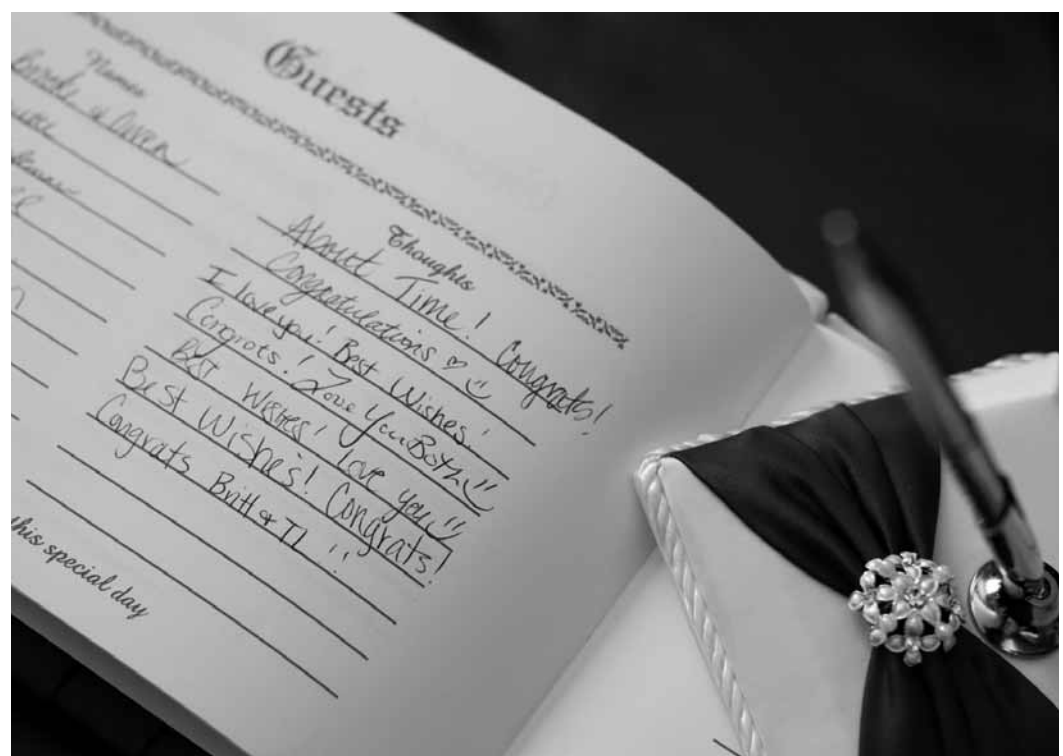 Guests
Names
Thoughts
& Owen
About Time! Congrats!
Congratulations ♡ :)
I love you! Best Wishes!
Congrats! Love You Both :)
Best Wishes! love you :)
Best Wishes! Congrats!
Congrats Britt & TJ !!
this special day